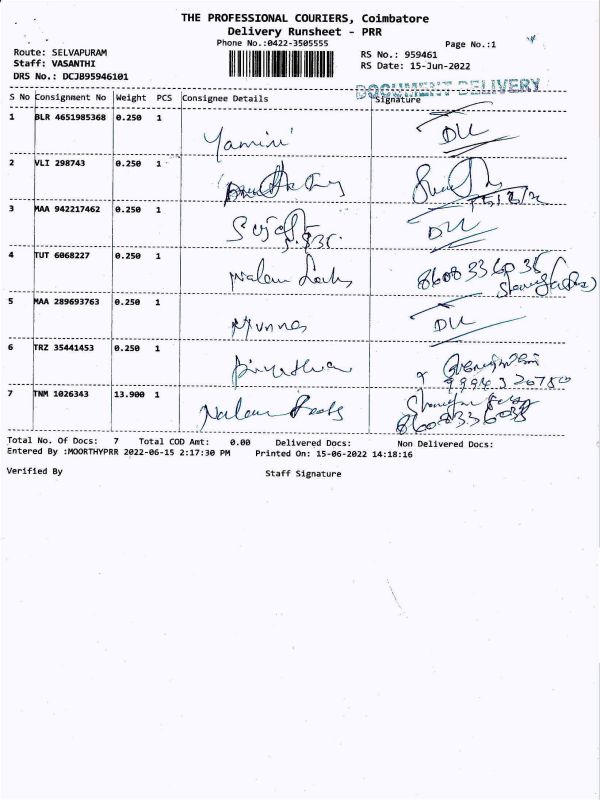 THE PROFESSIONAL COURIERS, Coimbatore
Delivery Runsheet - PRR
Phone No.:0422-3505555
Page No.:1
Route: SELVAPURAM
RS No.: 959461
Staff: VASANTHI
RS Date: 15-Jun-2022
DRS No.: DCJB95946101
DOCUMENT DELIVERY
S No Consignment No Weight PCS Consignee Details Signature
1 BLR 4651985368 0.250 1
Yamini DL
2 VLI 298743 0.250 1
3 MAA 942217462 0.250 1
DL
4 TUT 6068227 0.250 1
Nalam 8608336035
5 MAA 289693763 0.250 1
Munna DL
6 TRZ 35441453 0.250 1
7 TNM 1026343 13.900 1
Nalam
8608336035
Total No. Of Docs: 7 Total COD Amt: 0.00 Delivered Docs: Non Delivered Docs:
Entered By :MOORTHYPRR 2022-06-15 2:17:30 PM Printed On: 15-06-2022 14:18:16
Verified By Staff Signature